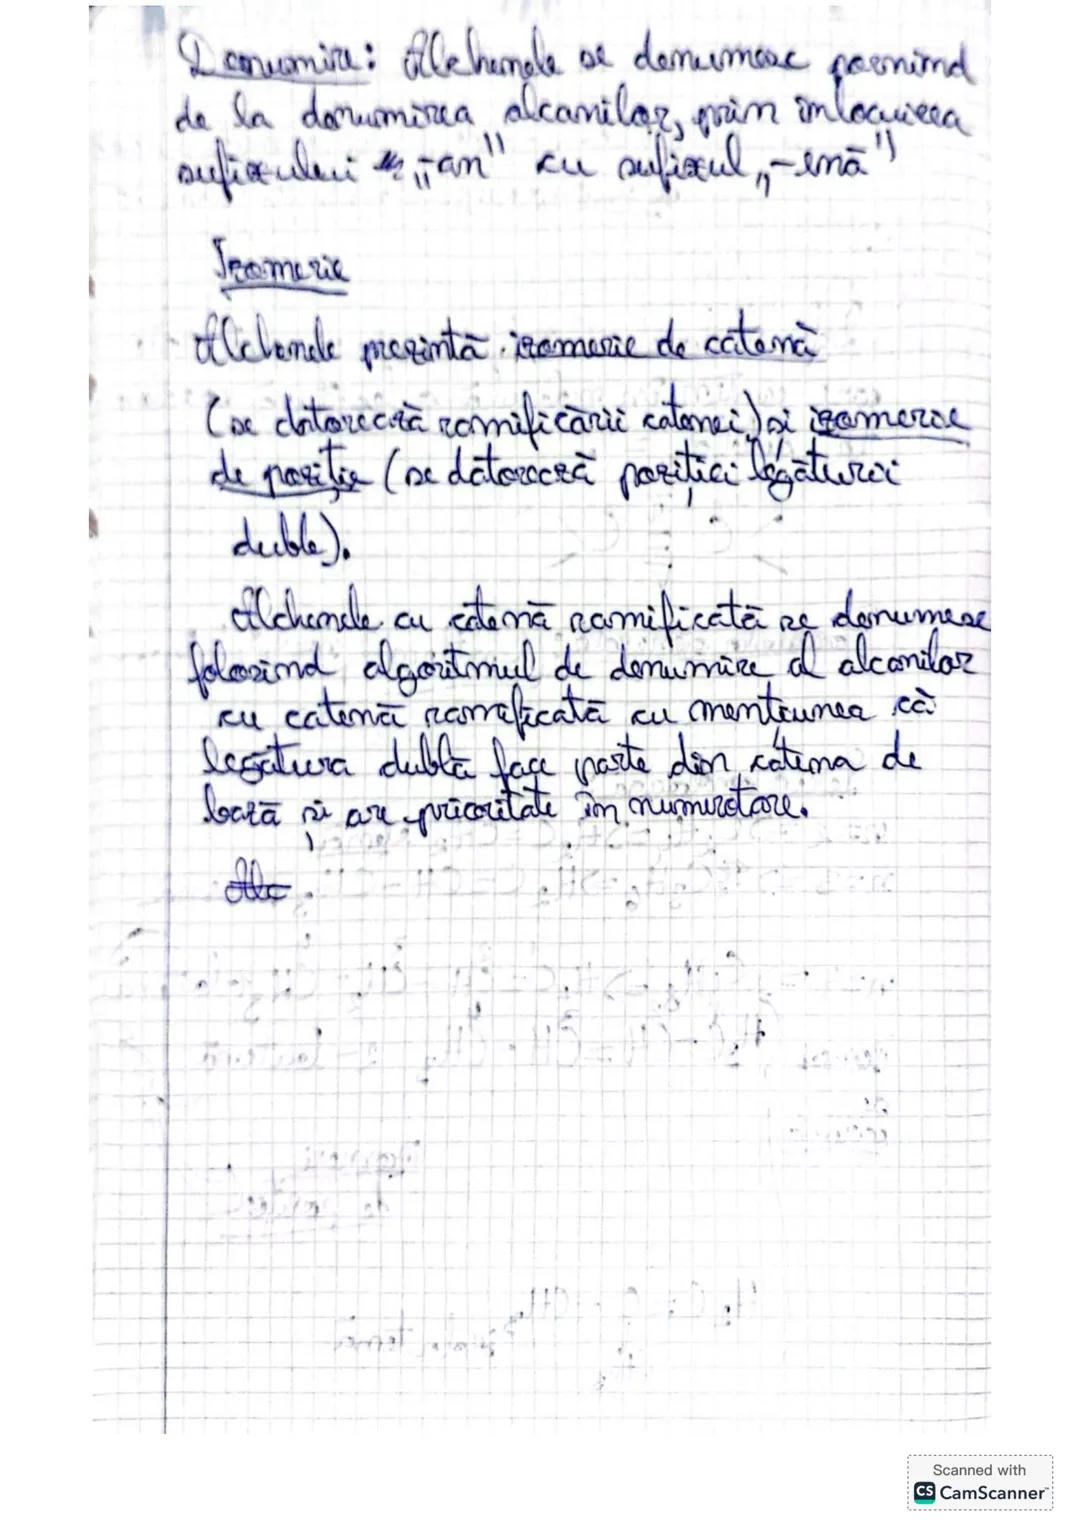 Denumire: Alchenele se denumesc pornind
de la denumirea alcanilor, prin înlocuirea
sufixului „-an" cu sufixul „-enă"
Izomerie
Alchenele prezintă izomerie de catenă
(se datorează ramificării catenei) și izomerie
de poziție (se datorează poziției legăturii
duble).
Alchenele cu catenă ramificată se denumesc
folosind algoritmul de denumire al alcanilor
cu catenă ramificată cu mențiunea că
legătura dublă face parte din catena de
bază și are prioritate în numerotare.
Alc
Scanned with
CS CamScanner